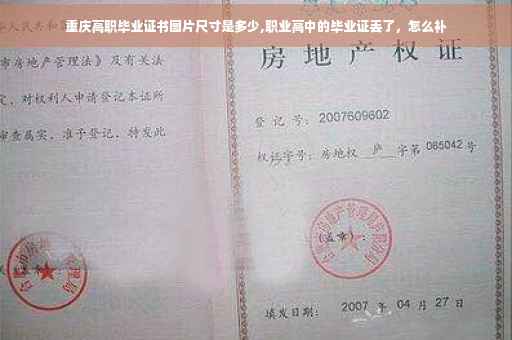 重庆高职毕业证书图片尺寸是多少,职业高中的毕业证丢了，怎么补
市房地产管理法》及有关法
定，对权利人申请登记本证所
审查属实，准予登记，特发此
房地产权证
登记号：2007609602
权证字号：房地权 庐 字第 085042 号
(盖章)：
填发日期：2007 年 04 月 27 日